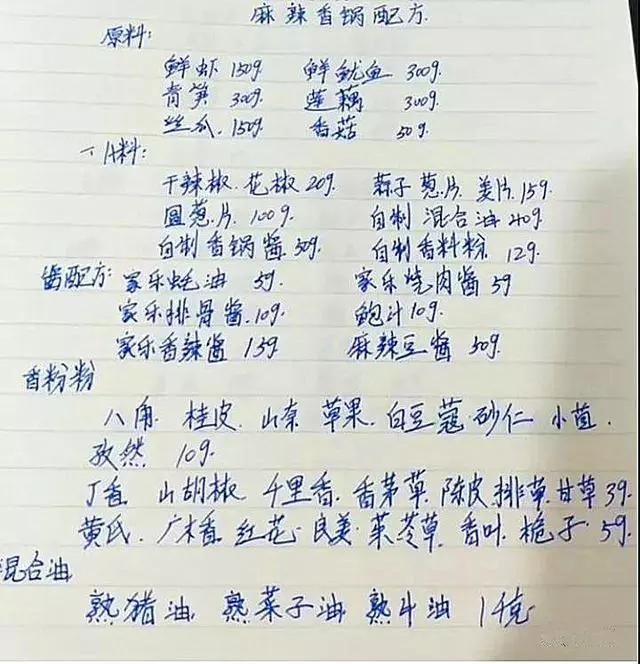 麻辣香锅配方
原料:
鲜虾 150g. 鲜鱿鱼 300g.
青笋 300g. 莲藕 300g.
丝瓜. 150g. 香菇 50g.
一小料:
干辣椒. 花椒 20g. 蒜子 葱片. 姜片. 15g.
圆葱片. 100g. 自制 混合油 40g.
自制香锅酱. 50g. 自制香料粉. 12g.
酱配方: 家乐蚝油 5g. 家乐烧肉酱 5g
家乐排骨酱. 10g. 鲍汁 10g.
家乐香辣酱 15g 麻辣豆酱 50g.
香粉粉
八角. 桂皮. 山奈 草果. 白豆蔻 砂仁 小茴.
孜然 10g.
丁香. 山胡椒 千里香. 香茅草. 陈皮. 排草. 甘草 3g.
黄氏. 广木香 红花. 良姜. 菜苓草. 香叶. 栀子. 5g.
混合油
熟猪油. 熟菜子油 熟斗油 1千克